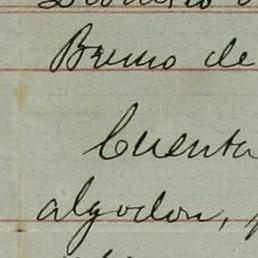 Bruno de
Cuenta
algodon,